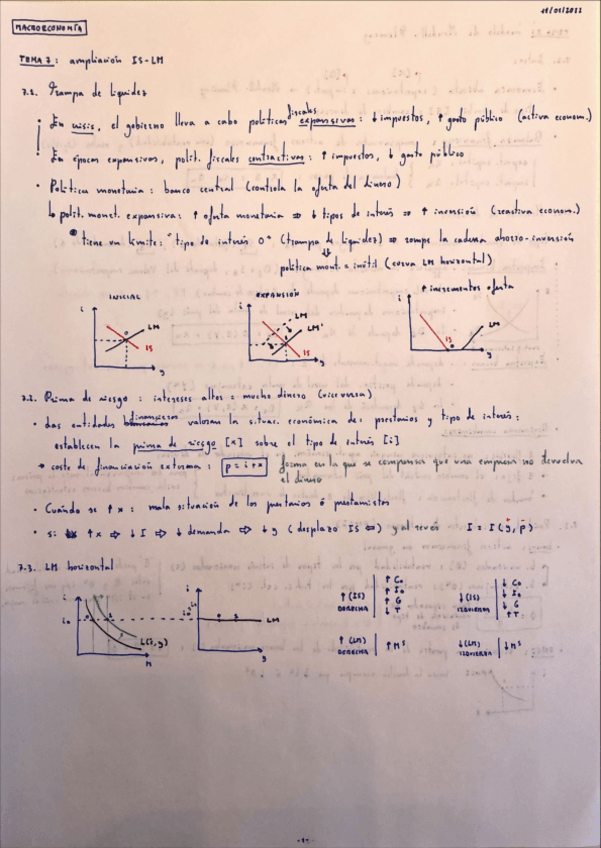 11/01/2022
MACROECONOMÍA
TEMA 7: ampliación IS-LM
7.1. Trampa de liquidez
• En crisis, el gobierno lleva a cabo políticas fiscales expansivas: ↓ impuestos, ↑ gasto público (activa econom.)
• En épocas expansivas, polít. fiscales contractivas: ↑ impuestos, ↓ gasto público
• Política monetaria: banco central (controla la oferta del dinero)
↳ polít. monet. expansiva: ↑ oferta monetaria ⇒ ↓ tipos de interés ⇒ ↑ inversión (reactiva econom.)
* tiene un límite: "tipo de interés 0" (trampa de liquidez) ⇒ rompe la cadena ahorro-inversión
⇓
política mont. = inútil (curva LM horizontal)
INICIAL
i
LM
IS
y
EXPANSIÓN
i
LM
LM'
IS
y
↑ incrementos oferta
i
LM
IS
y
7.2. Prima de riesgo: intereses altos = mucho dinero (viceversa)
• Las entidades financieras valoran la situac. económica de prestarios y tipo de interés:
establecen la prima de riesgo [x] sobre el tipo de interés [i]
* coste de financiación externa: p = i + x forma en la que se compensa que una empresa no devuelva
el dinero
• Cuándo se ↑ x: mala situación de los prestarios ó prestamistas
• si ↑ x ⇒ ↓ I ⇒ ↓ demanda ⇒ ↓ y (desplazo IS ⇦) y al revés I = I (y, p)
7.3. LM horizontal
i
i₀
L(i, y)
M
i
i₀
LM
y
↑ (IS) DERECHA
↑ C₀
↑ I₀
↑ G
↓ T
↓ (IS) IZQUIERDA
↓ C₀
↓ I₀
↓ G
↑ T
↑ (LM) DERECHA
↑ Mˢ
↓ (LM) IZQUIERDA
↓ Mˢ
-1-